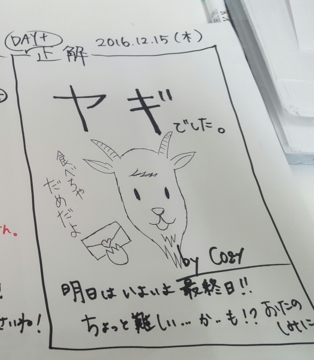 DAY4
2016.12.15(木)
正解
ヤギ
でした。
食べちゃ
だめだよ
by Cozy
明日はいよいよ最終日!!
ちょっと難しい…かーも!?
おたの
しみに
ん。
!
さいね!